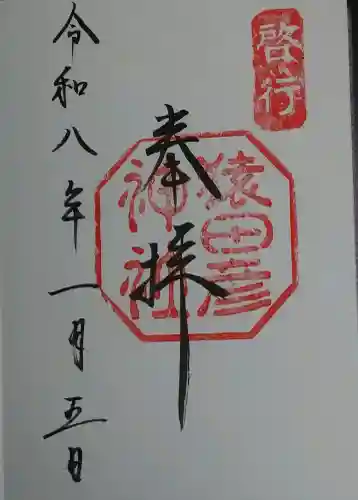 啓行
猿田彦
神社
奉拝
令和八年一月五日